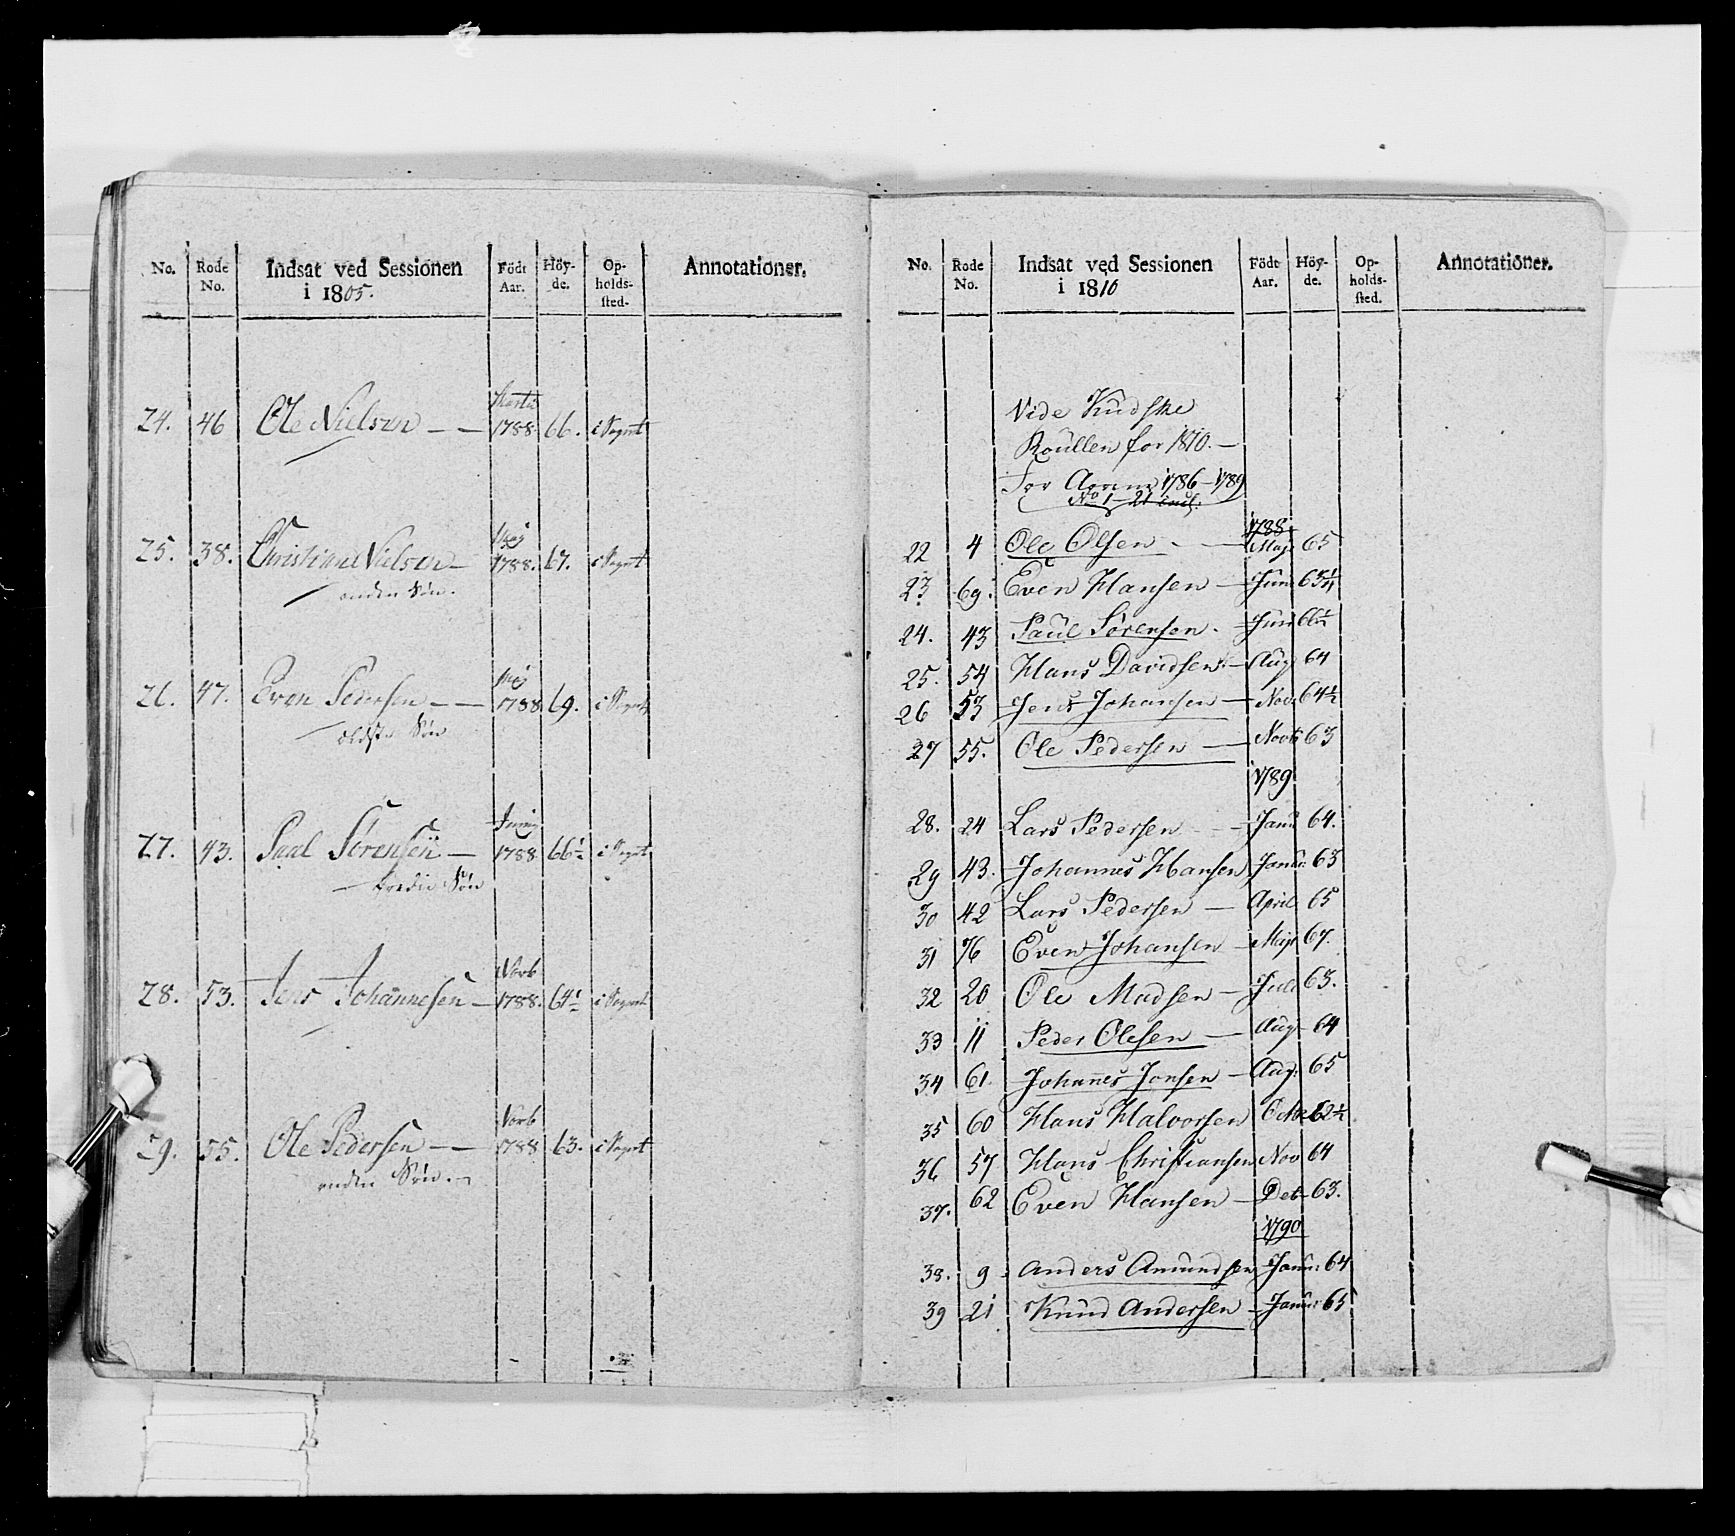 No. Rode No. Indsat ved Sessionen i 1805. Födt Aar. Höy-de. Op-holds-sted. Annotationer.
Martii
24. 46 Ole Nielsen — — 1788. 66. i Sognet
Maj
25. 38. Christian Nielsen — 1788. 67. i Sognet
anden Søn.
Maj
26. 47. Even Pedersen — — 1788 69. i Sognet
eldste Søn
Junij
27. 43. Paul Sörensen — 1788. 66½ i Sognet
— tredie Søn
Novb
28. 53. Jens Johannesen — 1788. 64½ i Sognet
Novb
29. 55. Ole Pedersen — — 1788 63. i Sognet
anden Søn. —
No. Rode No. Indsat ved Sessionen i 1810 Födt Aar. Höy-de. Op-holds-sted. Annotationer.
Vide
Roullen for 1810. —
For 1786 – 1789
No 1 – 21 incl.
1788
22 4 Ole Olsen — Maj 65
23 69. Even Hansen — Juni 63¼
24. 43 Paul Sörensen. — Juni 66½
25. 54 Hans Davidsen — Aug 64
26 53 Jens Johansen — Nov 64½
27 55. Ole Pedersen — Novb 63
1789
28. 24 Lars Pedersen — Janu 64.
29 43. Johannes Hansen Janu: 63
30 42 Lars Pedersen — April 65
31 76 Even Johansen — Maji 67.
32 20 Ole Madsen — Juli 63.
33 11 Peder Olesen — Aug 64
34 61. Johannes Jonsen — Aug: 65
35 60 Hans Halvorsen Octbr 62½
36 57 Hans Christiansen Nov 64
37. 62 Even Hansen — Det 63.
1790
38. 9 Anders Amundsen Janu: 64
39 21 Knud Andersen — Janu: 65